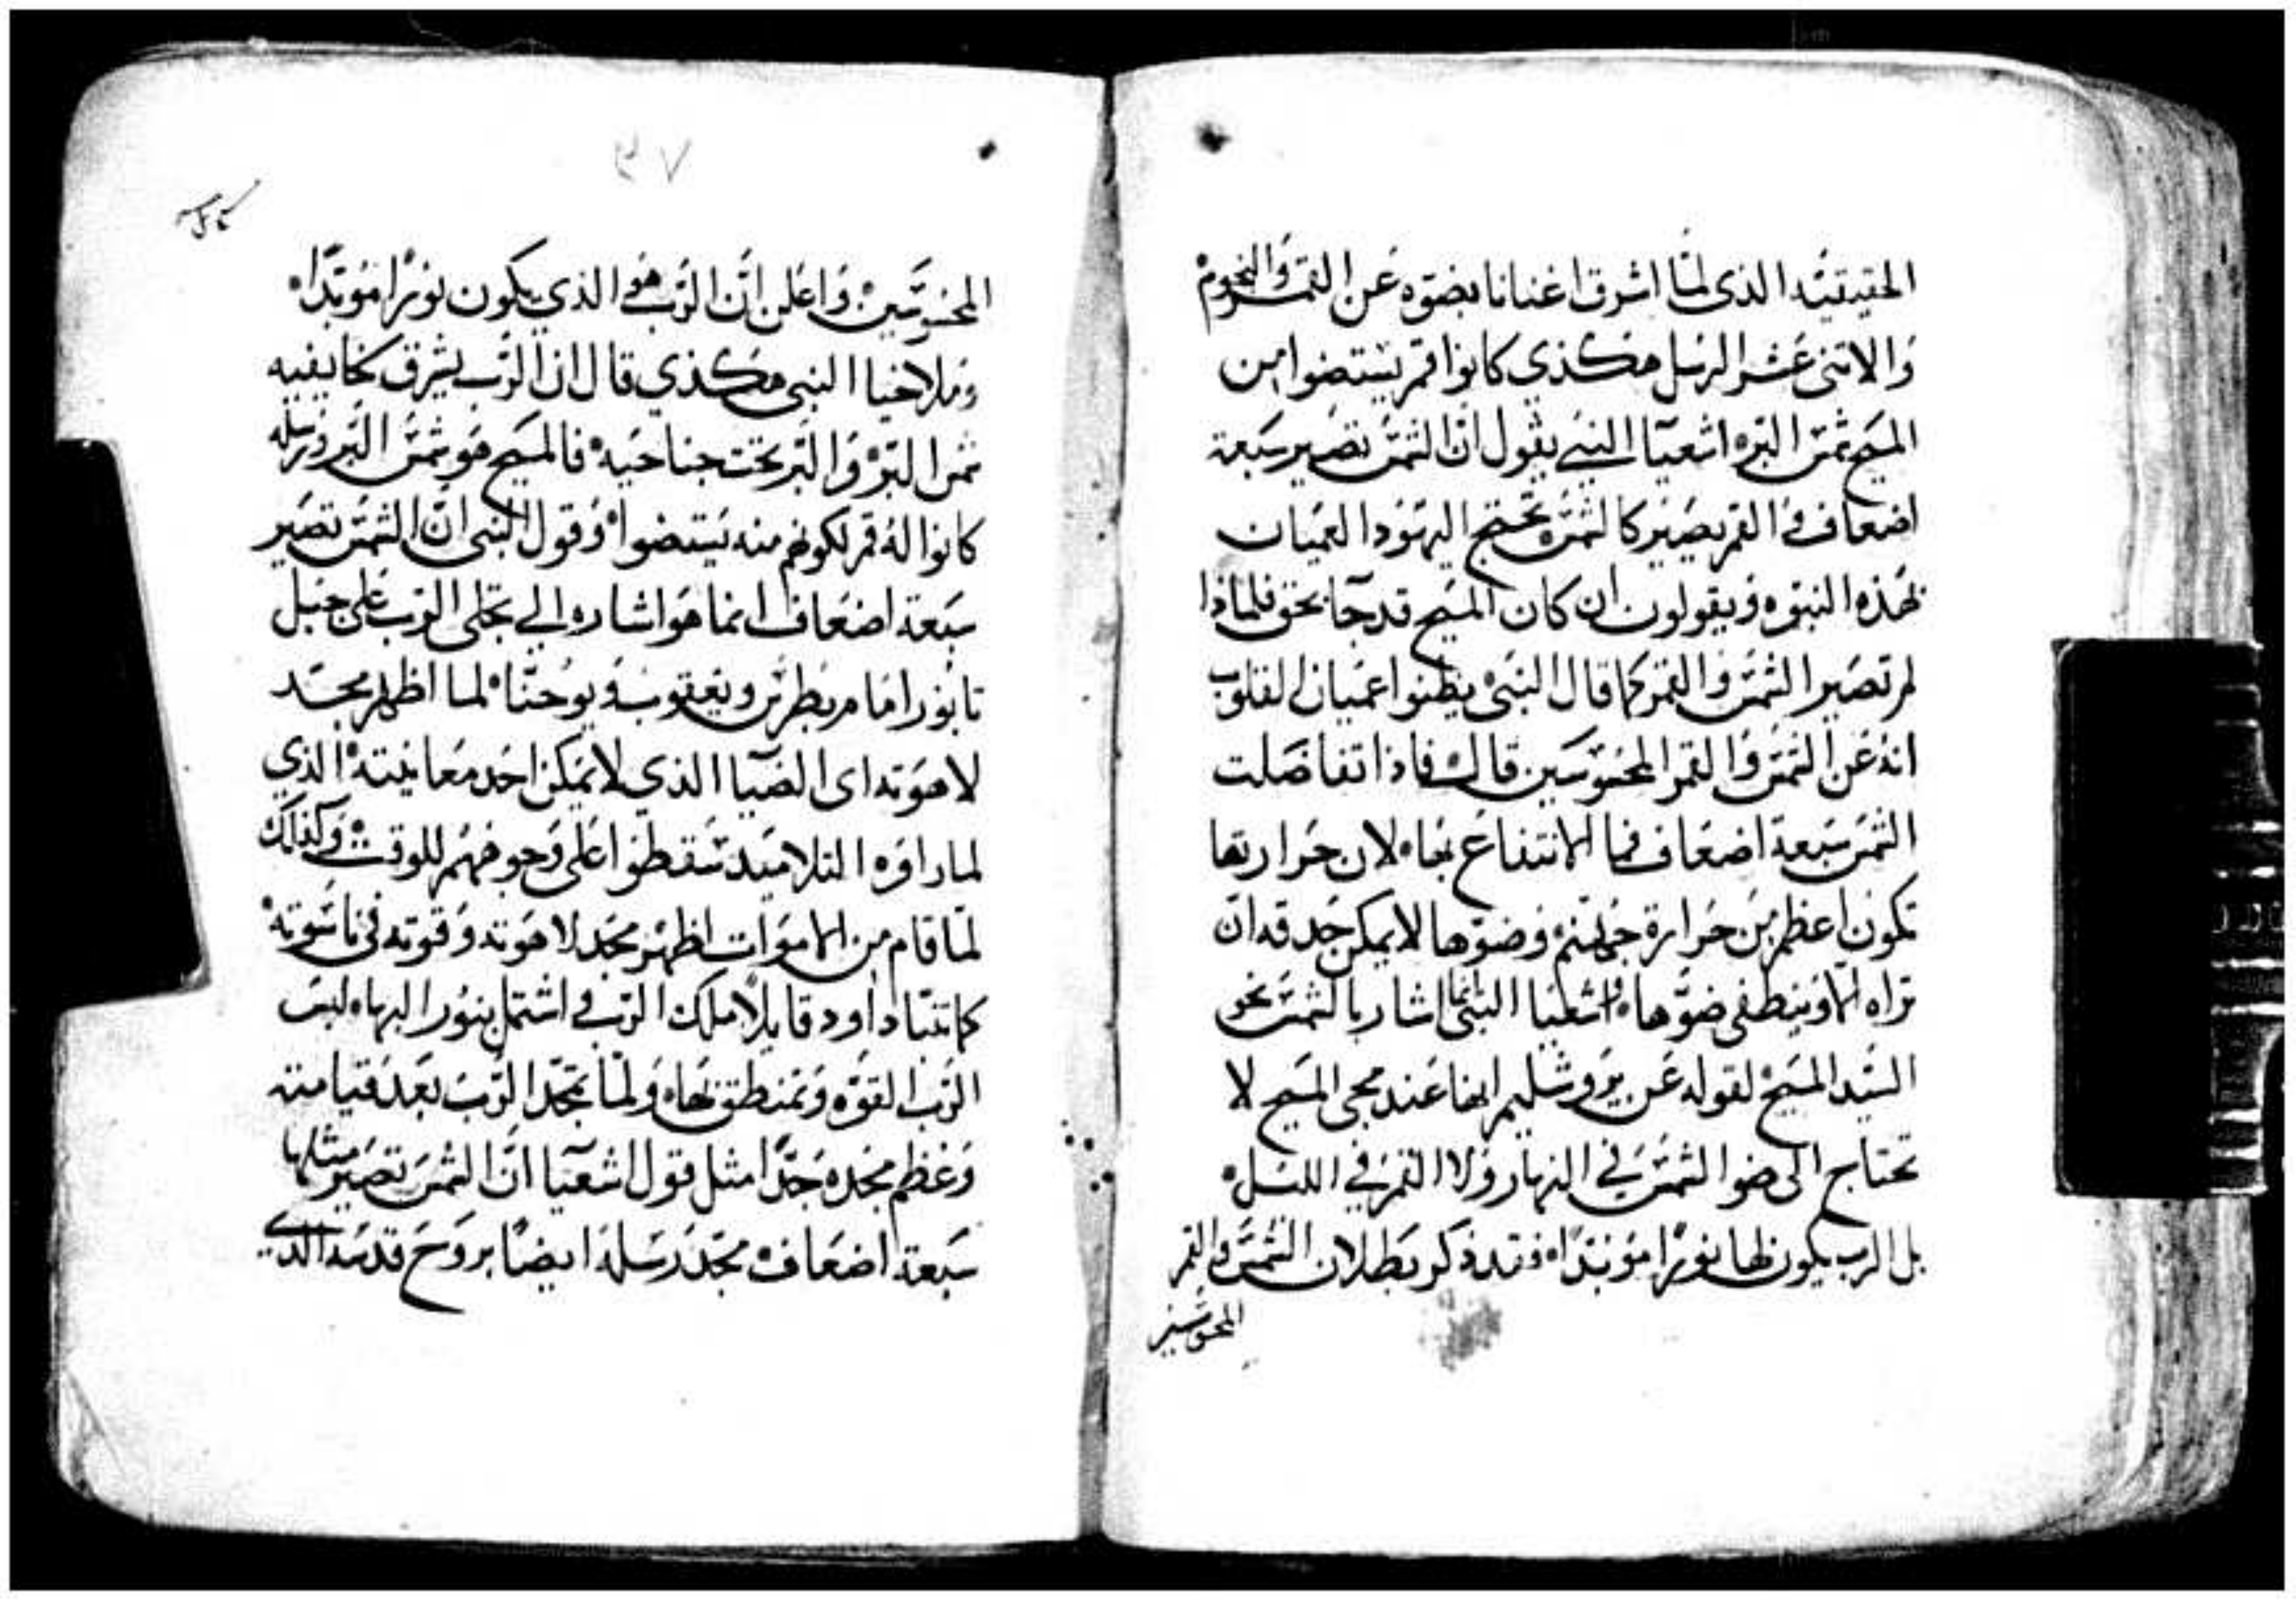 الحقيقيه الذى لمّا اشرق اغنانا بضوّه عن القمر والنجوم
والاتنى عشر الرسل هكذي كانوا قمر يستضوا من
المسيح شمس البرّ اشعيا النبي يقول ان الشمس تصير سبعة
اضعاف و القمر يصير كالشمس يحتج اليهود العميان
بهذه النبوه ويقولون ان كان المسيح قد جا بحق فلماذا
لم تصير الشمس والقمر كما قال النبى يظنوا عميان القلوب
انه عن الشمس والقمر المحسوسين قال فاذا تفاضلت
الشمس سبعة اضعاف فما الانتفاع بها لان حرارتها
تكون اعظم من حرارة جهنم وضوّها لا يمكن حدقه ان
تراه الا وينطفى ضوّها واشعيا النبى انما اشار بالشمس نحو
السيد المسيح لقوله عن يروشليم انها عند مجى المسيح لا
تحتاج الى ضوا الشمس في النهار ولا القمر في الليل
بل الرب يكون لها نورًا موبدًا فقد ذكر بطلان الشمس والقمر
المحسوسين
٣٧
المحسوسين واعلن ان الرب هو الذي يكون نورًا موبدًا
وملاخيا النبى هكذي قال ان الرب يشرق لخايفيه
شمس البرّ والبرّ تحت جناحيه فالمسيح هو شمس البر ورسله
كانوا له قمر لكونهم منه يستضوا وقول النبى ان الشمس تصير
سبعة اضعاف انما هو اشاره الي تجلى الرب على جبل
تابور امام بطرس ويعقوب ويوحنّا لما اظهر مجد
لاهوته اى الضيا الذي لا يمكن احد معاينته الذي
لما راوه التلاميد سقطوا على وجوههم للوقت وكذلك
لمّا قام من الاموات اظهر مجد لاهوته وقوته فى ناسوته
كما تنبّا داود قايلًا ملك الرب و اشتمل بنور البهاء لبس
الرب القوّه وتمنطق بها ولمّا تمجّد الرب بعد قيامته
وعظم مجده جدًا مثل قول اشعيا ان الشمس تصير مثلها
سبعة اضعاف مجّد رسله ايضًا بروح قدسه الذي